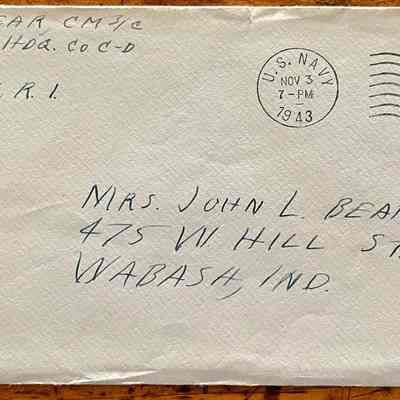 EAR CM 3/C
HDQ. CO C-D
R. I.
U.S. NAVY
NOV 3
7-PM
1943
MRS. JOHN L. BEA
475 W HILL ST.
WABASH, IND.